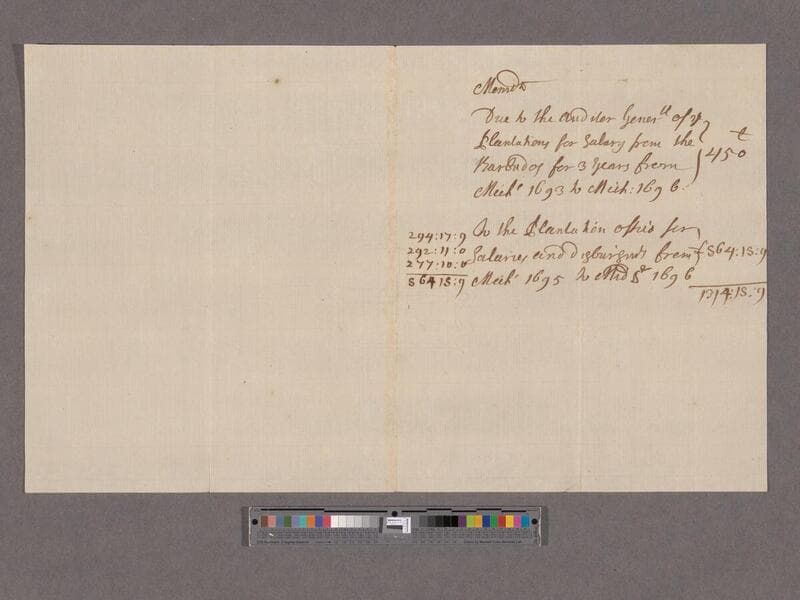 Memd
Due to the Auditor Generll of ye
Plantations for Salary from the
Barbados for 3 years from
Mich: 1693 to Mich: 1696
£
450
To the Plantation office for
Salaries and disbursmts from
Mich: 1695 to Midsr 1696
294:17:9
292:11:0
277:10:0
864:18:9
£ 864:18:9
1314:18:9